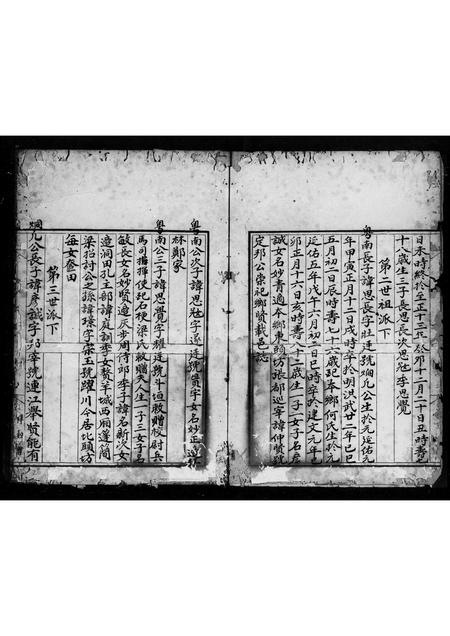 日未時終於至正十三年癸卯十二月二十日丑時壽
十八歲生三子長思長次思冦季思覺
第二世祖派下
粤南長子諱思長字壯逵號烱凢公生於延佑元
年甲寅正月十二日戌時卒於明洪武廿二年己巳
五月初二日辰時壽七十六歲配本鄉何氏生於元
延佑五年戊午六月初二日巳時卒於建文元年己
卯正月十六日亥時壽八十二歲生一子一女子名彥
誠女名妙青適本鄉東頭坊張都巡宰諱仲賢號
定邦公崇祀鄉賢載邑誌
粤南公次子諱思冦字遂逵號 女名妙正適
林鄭家
粤南公三子諱思覺字耀逵號斗垣敕贈校尉兵
馬司指揮使配石梗梁氏敕贈夫人生一子三女子名
敏長女名妙賢適反步周侍郎季子諱名新次女
適澗田孔主部諱庭訓季女贅羊城西廂蓬簡
梁招討公之孫諱璟字崇玉號躍川今居北頭坊
每女奩田
第三世派下
烱凢公長子諱彥誠字 宰號連江舉賢能有